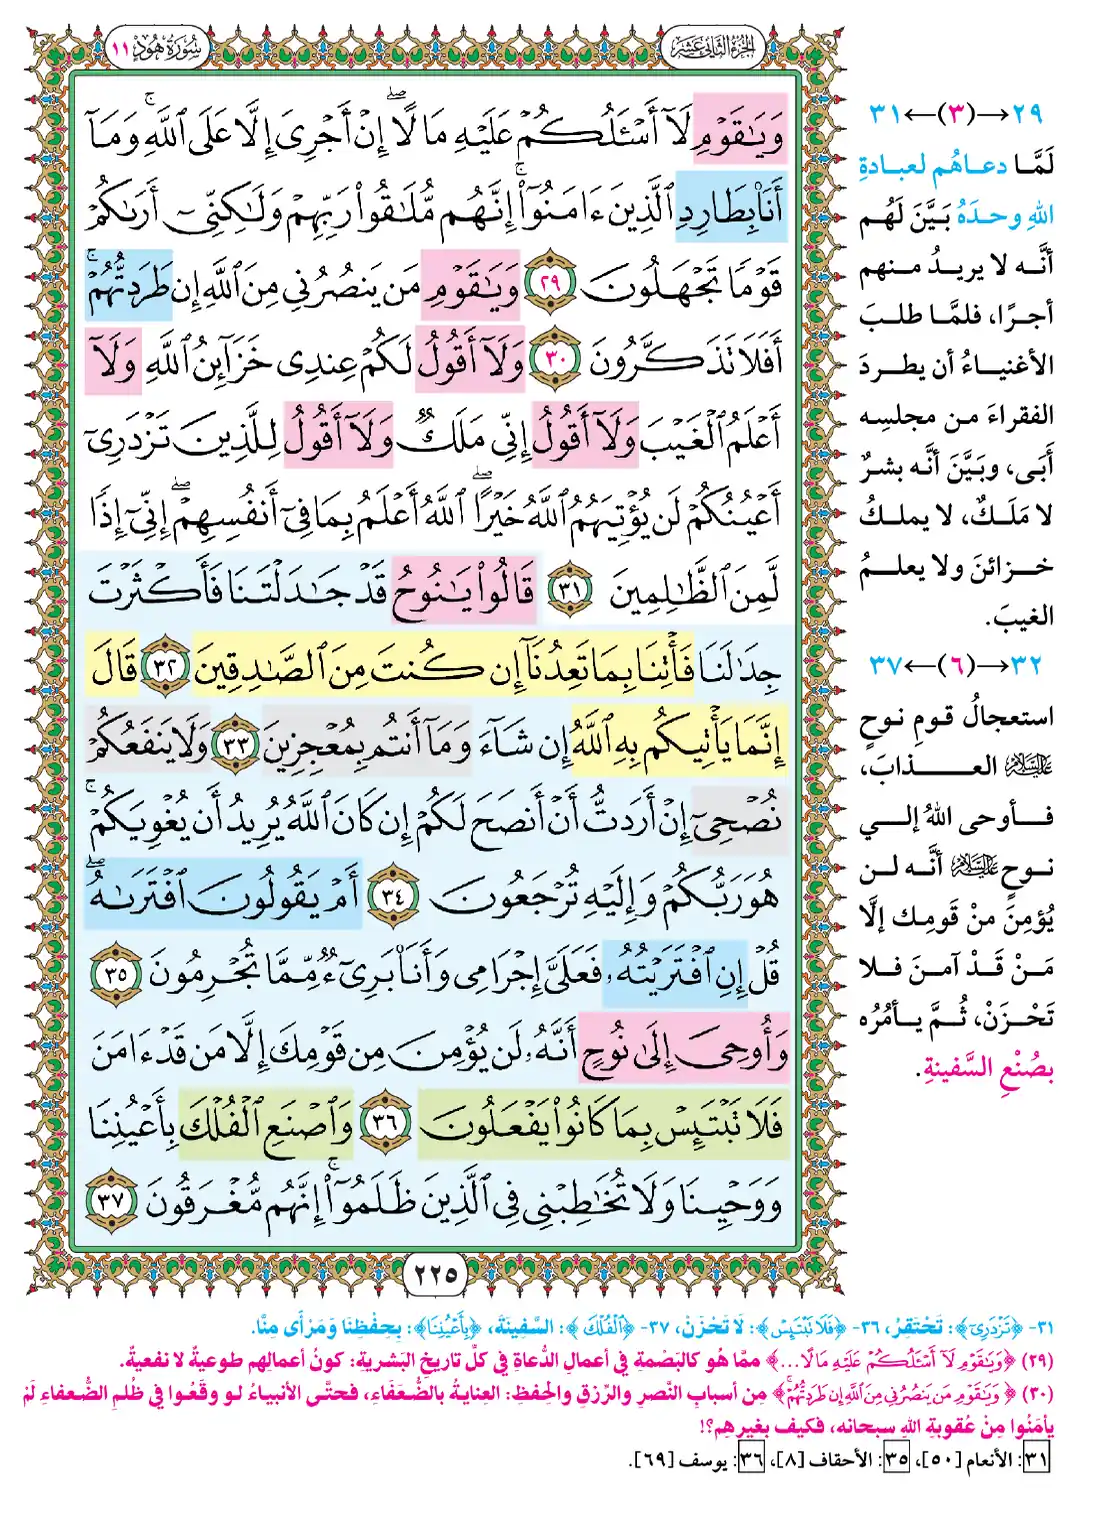 الجزء الثاني عشر
سورة هود ١١
وَيَٰقَوْمِ لَآ أَسْـَٔلُكُمْ عَلَيْهِ مَالًا ۖ إِنْ أَجْرِىَ إِلَّا عَلَى ٱللَّهِ ۚ وَمَآ
أَنَا۠ بِطَارِدِ ٱلَّذِينَ ءَامَنُوٓا۟ ۚ إِنَّهُم مُّلَٰقُوا۟ رَبِّهِمْ وَلَٰكِنِّىٓ أَرَىٰكُمْ
قَوْمًا تَجْهَلُونَ ٢٩ وَيَٰقَوْمِ مَن يَنصُرُنِى مِنَ ٱللَّهِ إِن طَرَدتُّهُمْ ۚ
أَفَلَا تَذَكَّرُونَ ٣٠ وَلَآ أَقُولُ لَكُمْ عِندِى خَزَآئِنُ ٱللَّهِ وَلَآ
أَعْلَمُ ٱلْغَيْبَ وَلَآ أَقُولُ إِنِّى مَلَكٌ وَلَآ أَقُولُ لِلَّذِينَ تَزْدَرِىٓ
أَعْيُنُكُمْ لَن يُؤْتِيَهُمُ ٱللَّهُ خَيْرًا ۖ ٱللَّهُ أَعْلَمُ بِمَا فِىٓ أَنفُسِهِمْ ۖ إِنِّىٓ إِذًا
لَّمِنَ ٱلظَّٰلِمِينَ ٣١ قَالُوا۟ يَٰنُوحُ قَدْ جَٰدَلْتَنَا فَأَكْثَرْتَ
جِدَٰلَنَا فَأْتِنَا بِمَا تَعِدُنَآ إِن كُنتَ مِنَ ٱلصَّٰدِقِينَ ٣٢ قَالَ
إِنَّمَا يَأْتِيكُم بِهِ ٱللَّهُ إِن شَآءَ وَمَآ أَنتُم بِمُعْجِزِينَ ٣٣ وَلَا يَنفَعُكُمْ
نُصْحِىٓ إِنْ أَرَدتُّ أَنْ أَنصَحَ لَكُمْ إِن كَانَ ٱللَّهُ يُرِيدُ أَن يُغْوِيَكُمْ ۚ
هُوَ رَبُّكُمْ وَإِلَيْهِ تُرْجَعُونَ ٣٤ أَمْ يَقُولُونَ ٱفْتَرَىٰهُ ۖ
قُلْ إِنِ ٱفْتَرَيْتُهُۥ فَعَلَىَّ إِجْرَامِى وَأَنَا۠ بَرِىٓءٌ مِّمَّا تُجْرِمُونَ ٣٥
وَأُوحِىَ إِلَىٰ نُوحٍ أَنَّهُۥ لَن يُؤْمِنَ مِن قَوْمِكَ إِلَّا مَن قَدْ ءَامَنَ
فَلَا تَبْتَئِسْ بِمَا كَانُوا۟ يَفْعَلُونَ ٣٦ وَٱصْنَعِ ٱلْفُلْكَ بِأَعْيُنِنَا
وَوَحْيِنَا وَلَا تُخَٰطِبْنِى فِى ٱلَّذِينَ ظَلَمُوٓا۟ ۚ إِنَّهُم مُّغْرَقُونَ ٣٧
٢٢٥
٢٩→(٣)←٣١
لَمَّا دعـاهُم لعبـادةِ
اللهِ وحـدَهُ بيَّنَ لَهُم
أنَّـه لا يريـدُ منـهم
أجـرًا، فلمَّـا طلـبَ
الأغنيـاءُ أن يطـردَ
الفقراءَ مـن مجلسِـه
أبَى، وبَيَّنَ أنَّـه بشرٌ
لا مَلَـكٌ، لا يملـكُ
خـزائنَ ولا يعلـمُ
الغيبَ.
٣٢→(٦)←٣٧
استعجالُ قـومِ نـوحٍ
عليه السلام العـذابَ،
فـأوحى اللهُ إلـي
نـوحٍ عليه السلام أنَّـه لـن
يُؤمِنَ منْ قَومِك إلَّا
مَـنْ قَـدْ آمـنَ فـلا
تَحْـزَنْ، ثُـمَّ يـأمُرُه
بصُنْعِ السَّفينةِ.
٣١- ﴿تَزْدَرِىٓ﴾: تَحْتَقِرُ، ٣٦- ﴿فَلَا تَبْتَئِسْ﴾: لَا تَحْزَنْ، ٣٧- ﴿ٱلْفُلْكَ﴾: السَّفِينَةَ، ﴿بِأَعْيُنِنَا﴾: بِحِفْظِنَا وَمَرْأَى مِنَّا.
(٢٩) ﴿وَيَٰقَوْمِ لَآ أَسْـَٔلُكُمْ عَلَيْهِ مَالًا...﴾ ممَّا هُو كالبَصْمةِ في أعمالِ الدُّعاةِ في كلِّ تاريخِ البَشريةِ: كونُ أعمالِهم طوعيةً لا نفعيةً.
(٣٠) ﴿وَيَٰقَوْمِ مَن يَنصُرُنِى مِنَ ٱللَّهِ إِن طَرَدتُّهُمْ﴾ مِن أسبابِ النَّصرِ والرِّزقِ والحِفظِ: العِنايةُ بالضُّعَفَاءِ، فحتَّى الأنبياءُ لو وقَعُوا في ظُلمِ الضُّعفاءِ لَمْ
يأمَنُوا مِنْ عُقوبةِ اللهِ سبحانه، فكيف بغيرِهم؟!
٣١: الأنعام [٥٠]، ٣٥: الأحقاف [٨]، ٣٦: يوسف [٦٩].